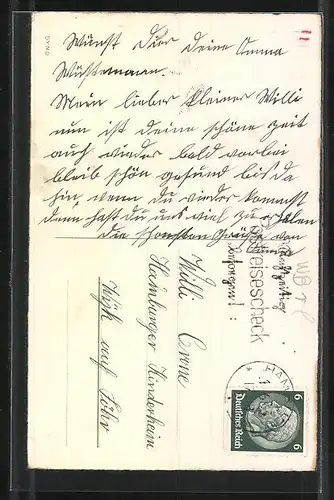 Wünscht Dir Deine Emma
Wüstemann.
Mein lieber kleiner Willi
nun ist deine schöne Zeit
auch wieder bald vorbei
bleib schön gesund bis da
hin, wenn du wieder kommst
dann hast du uns viel zu erzählen
die schönsten Grüße von
Willi Crone
Hamburger Kinderheim
Wyk auf Föhr
Reisescheck
besorgen!
HAM
Deutsches Reich
6
6